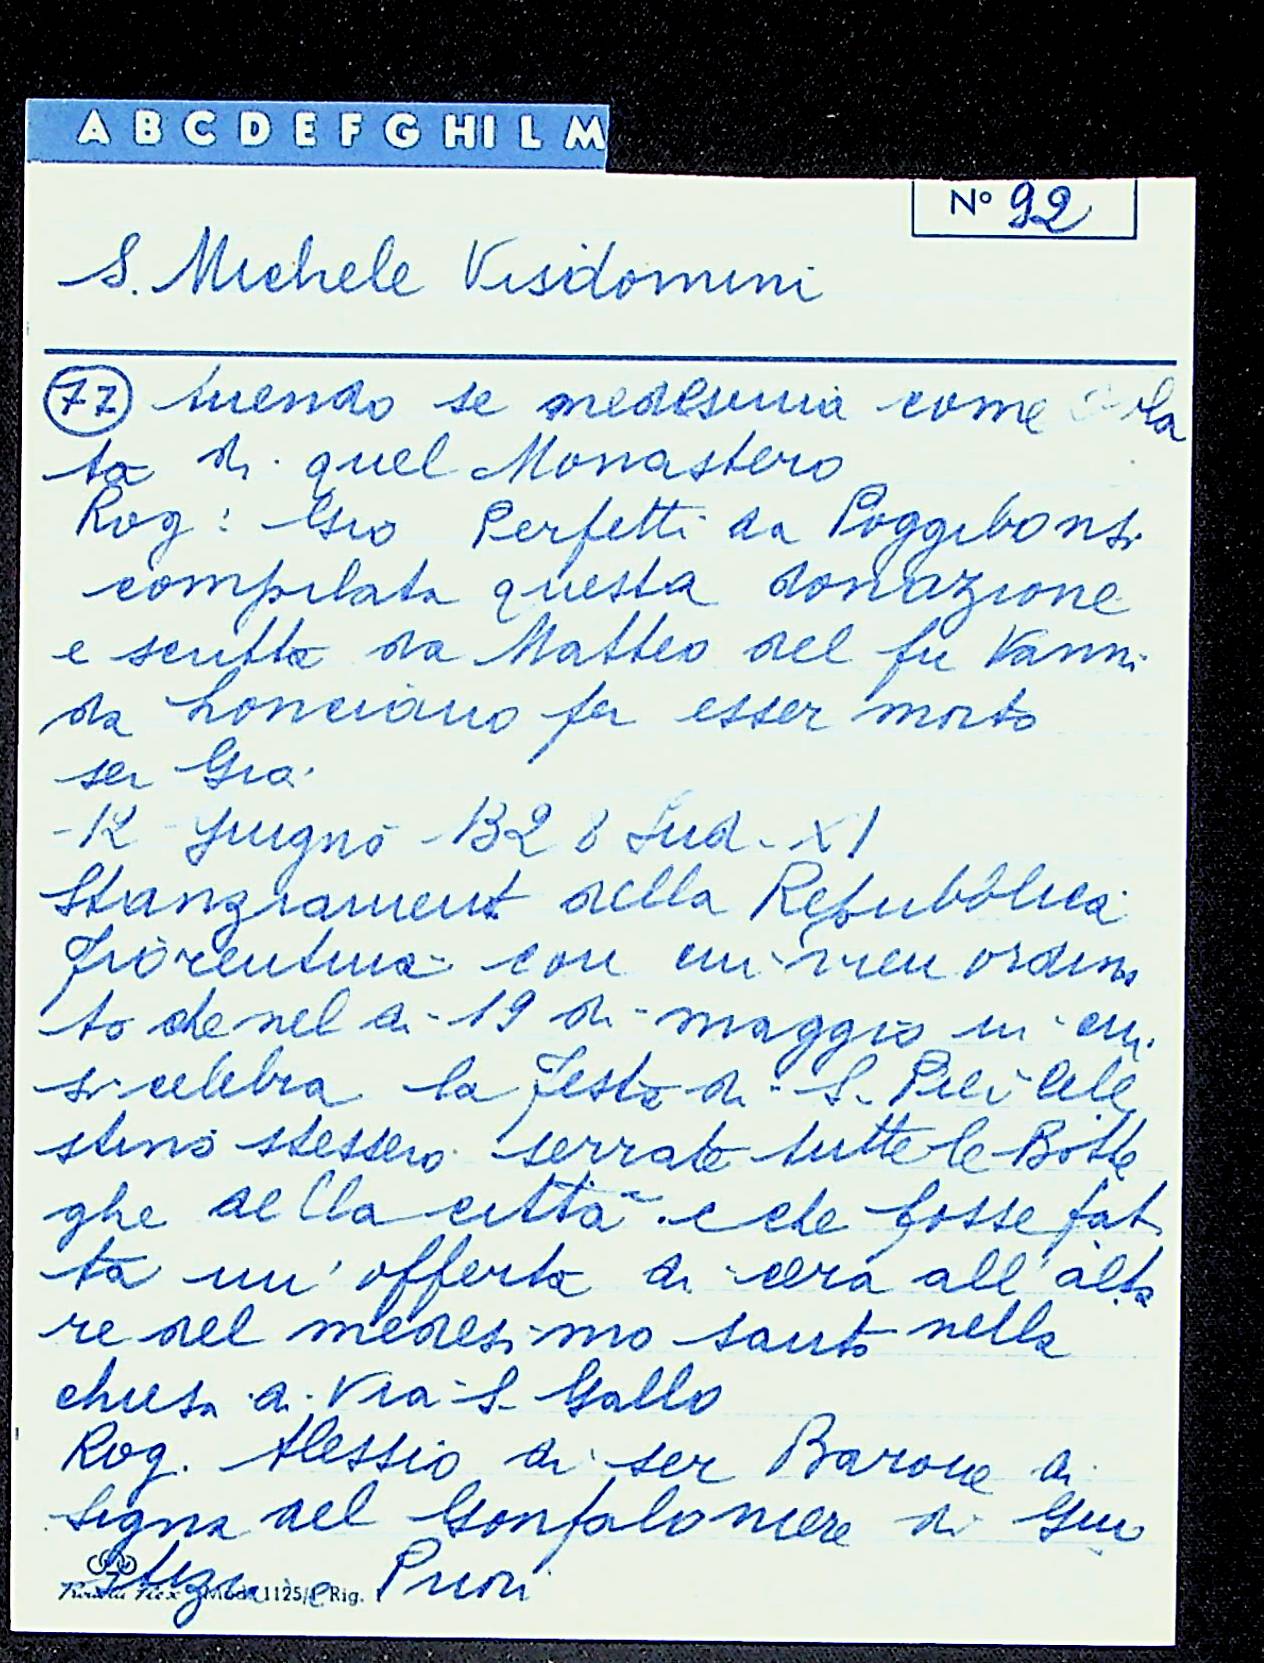 A B C D E F G HI L M
N° 92
S. Michele Visdomini
77 tuendo se medesima come
ta di quel Monastero
Rog: Gio Perfetti da Poggibonsi
compilata questa donazione
e scritta da Matteo del fu Vanni
da Lonciano per esser morto
ser Gio:
-12 Giugno -1328 Ind. XI
Stanziament della Repubblica
Fiorentina con cui vien ordina
to che nel di 19 di maggio in cui
si celebra la Festa di S. Pier Cele
stino stessero serrate tutte le Botte
ghe della città e che fosse fat
ta un' offerta di cera all' alta
re del medesimo santo nella
chiesa di Via S. Gallo
Rog. Alessio di ser Barone di
Signa del Gonfaloniere di Giu
stizia e Priori
Mod. 1125/ Rig.